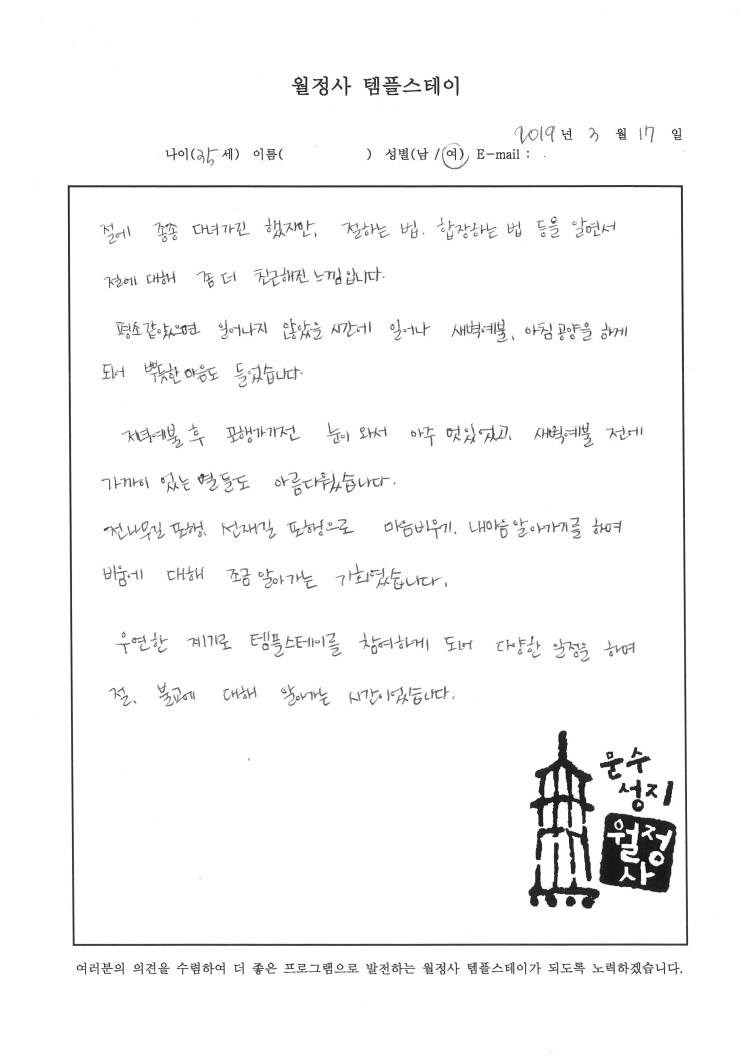 월정사 템플스테이
2019 년 3 월 17 일
나이(35 세) 이름( ) 성별(남 / 여), E-mail :
절에 종종 다녀가긴 했지만, 절하는 법, 합장하는 법 등을 알면서
절에 대해 좀 더 친근해진 느낌입니다.
평소같았으면 일어나지 않았을 시간에 일어나 새벽예불, 아침공양을 하게
되어 뿌듯한 마음도 들었습니다.
저녁예불 후 포행가기전 눈이 와서 아주 멋있었고, 새벽예불 전에
가까이 있는 별들도 아름다웠습니다.
전나무길 포행, 선재길 포행으로 마음비우기, 내마음알아가기를 하며
비움에 대해 조금 알아가는 기회였습니다.
우연한 계기로 템플스테이를 참여하게 되어 다양한 일정을 하며
절, 불교에 대해 알아가는 시간이었습니다.
문수
성지
월정
사
여러분의 의견을 수렴하여 더 좋은 프로그램으로 발전하는 월정사 템플스테이가 되도록 노력하겠습니다.